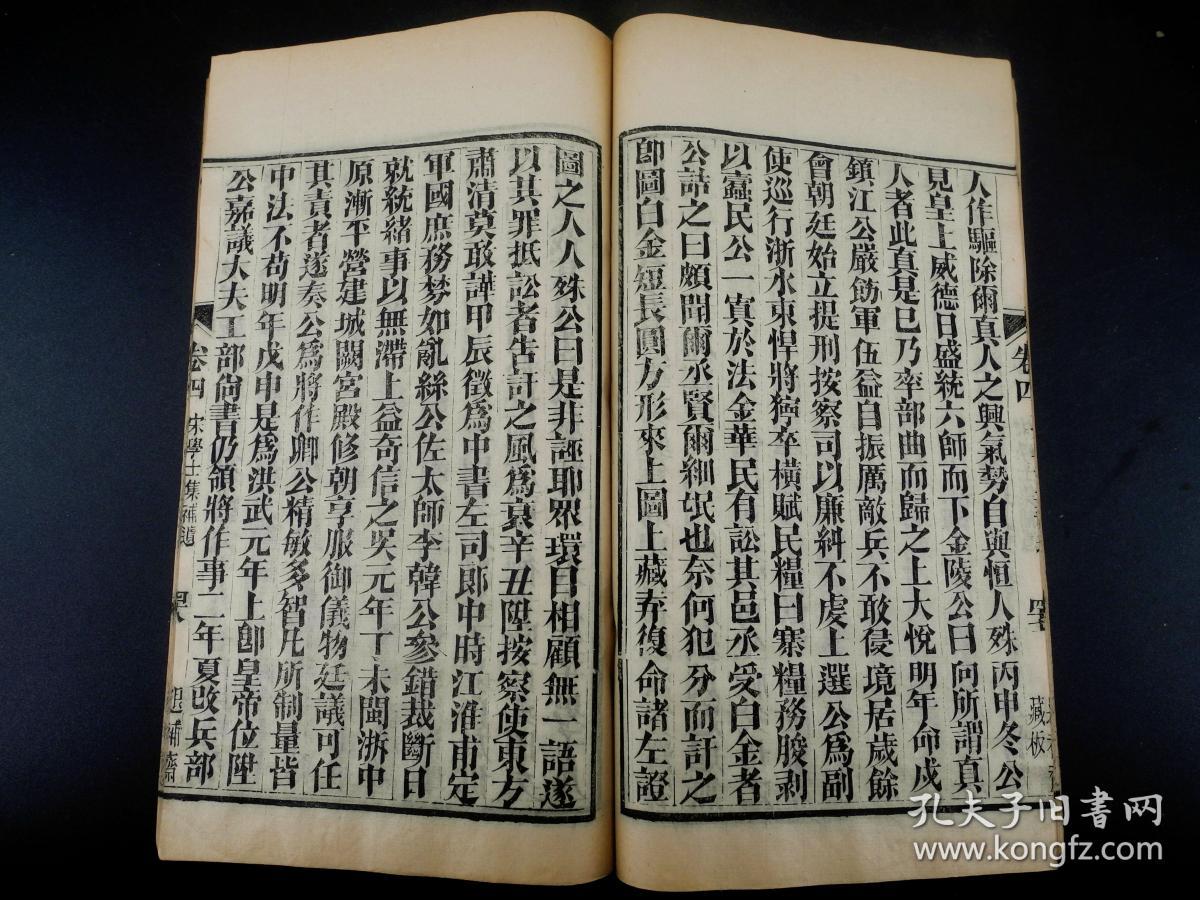 人作驅除爾真人之興氣勢自與恒人殊丙申冬公
見皇上威德日盛統六師而下金陵公曰向所謂真
人者此真是已乃率部曲而歸之上大悅明年命戍
鎮江公嚴飭軍伍益自振厲敵兵不敢侵境居歲餘
會朝廷始立提刑按察司以廉糾不虔上選公爲副
使巡行浙水東悍將獰卒橫賦民糧曰寨糧務朘剥
以蠧民公一寘於法金華民有訟其邑丞受白金者
公詰之曰頗聞爾丞賢爾細氓也奈何犯分而訐之
卽圖白金短長圓方形來上圖上藏弆復命諸左證
圖之人人殊公曰是非誣耶眾環目相顧無一語遂
以其罪抵訟者告訐之風爲衰辛丑陞按察使東方
肅清莫敢譁甲辰徵爲中書左司郎中時江淮甫定
軍國庶務棼如亂絲公佐太師李韓公參錯裁斷日
就統緒事以無滯上益奇信之吳元年丁未閩浙中
原漸平營建城闕宮殿修朝享服御儀物廷議可任
其責者遂奏公爲將作卿公精敏多智凡所制量皆
中法不苟明年戊申是爲洪武元年上卽皇帝位陞
公嘉議大夫工部尙書仍領將作事二年夏改兵部
卷四
藏板
卷四 宋學士集補遺
退補齋
孔夫子旧书网
www.kongfz.com